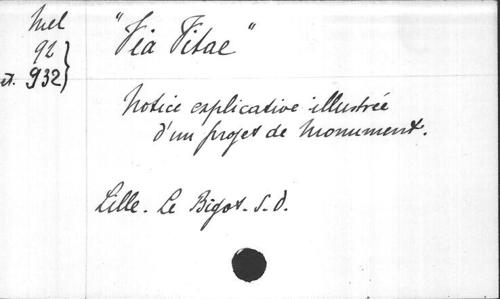 Mel
92
et. 932
"Via Vitae"
Notice explicative illustrée
d'un projet de Monument.
Lille. Le Bigot. S.D.